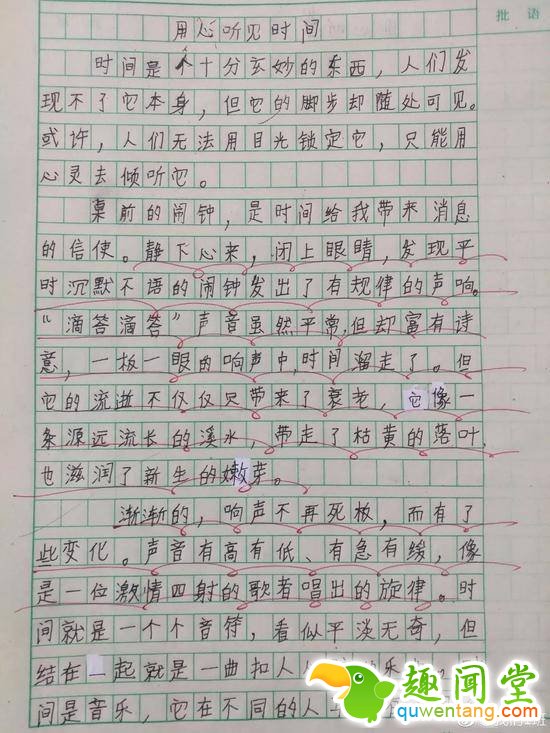 批 语
用心听见时间
时间是个十分玄妙的东西，人们发
现不了它本身，但它的脚步却随处可见。
或许，人们无法用目光锁定它，只能用
心灵去倾听它。
桌前的闹钟，是时间给我带来消息
的信使。静下心来，闭上眼睛，发现平
时沉默不语的闹钟发出了有规律的声响。
“滴答滴答”声音虽然平常，但却富有诗
意，一板一眼的响声中，时间溜走了。但
它的流逝不仅仅只带来了衰老，它像一
条源远流长的溪水，带走了枯黄的落叶，
也滋润了新生的嫩芽。
渐渐的，响声不再死板，而有了
些变化。声音有高有低、有急有缓，像
是一位激情四射的歌者唱出的旋律。时
间就是一个个音符，看似平淡无奇，但
结在一起就是一曲扣人
间是音乐，它在不同的人
趣闻堂
quwentang.com